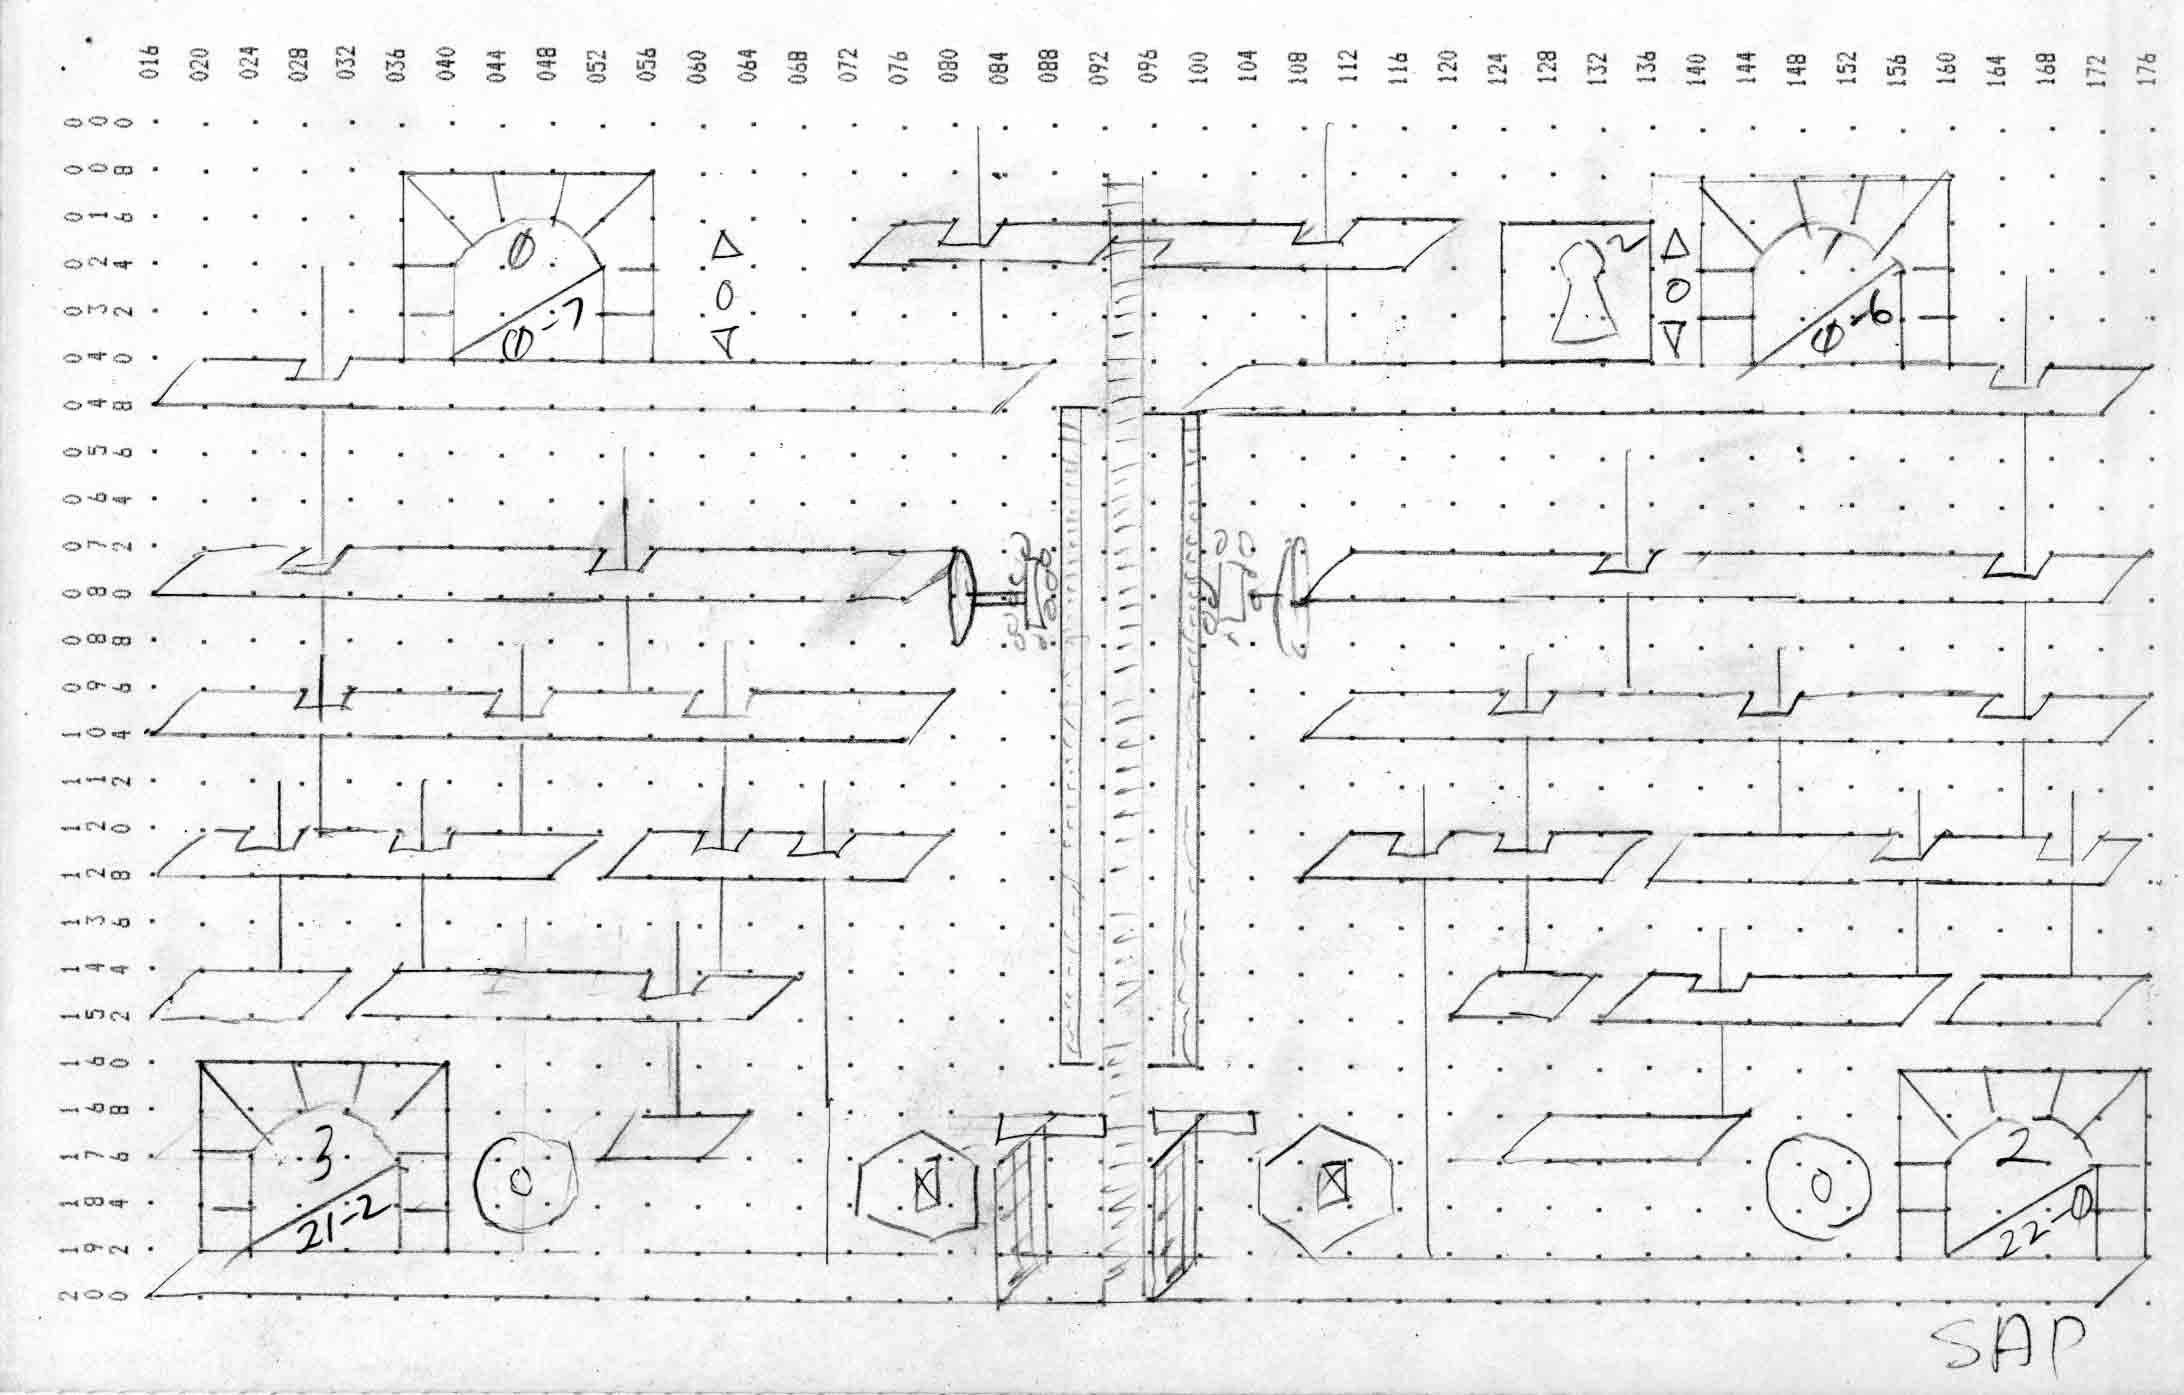 016 020 024 028 032 036 040 044 048 052 056 060 064 068 072 076 080 084 088 092 096 100 104 108 112 116 120 124 128 132 136 140 144 148 152 156 160 164 168 172 176
000
008
016
0 1
2
024
032
0-7 0-6
040
048
056
064
072
080
088
096
104
112
120
128
136
144
152
160
168
176
3 2
184
21-2 22-0
192
200
SAP